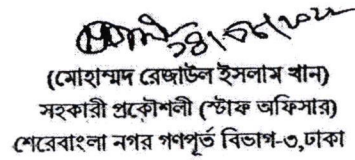 (মোহাম্মদ রেজাউল ইসলাম খান)
সহকারী প্রকৌশলী (স্টাফ অফিসার)
শেরেবাংলা নগর গণপূর্ত বিভাগ-৩,ঢাকা